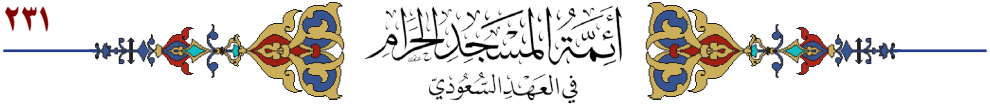 ٢٣١
أَئِمَّةُ المَسْجِدِ الحَرَامِ
فِي العَهْدِ السُّعُودِيِّ